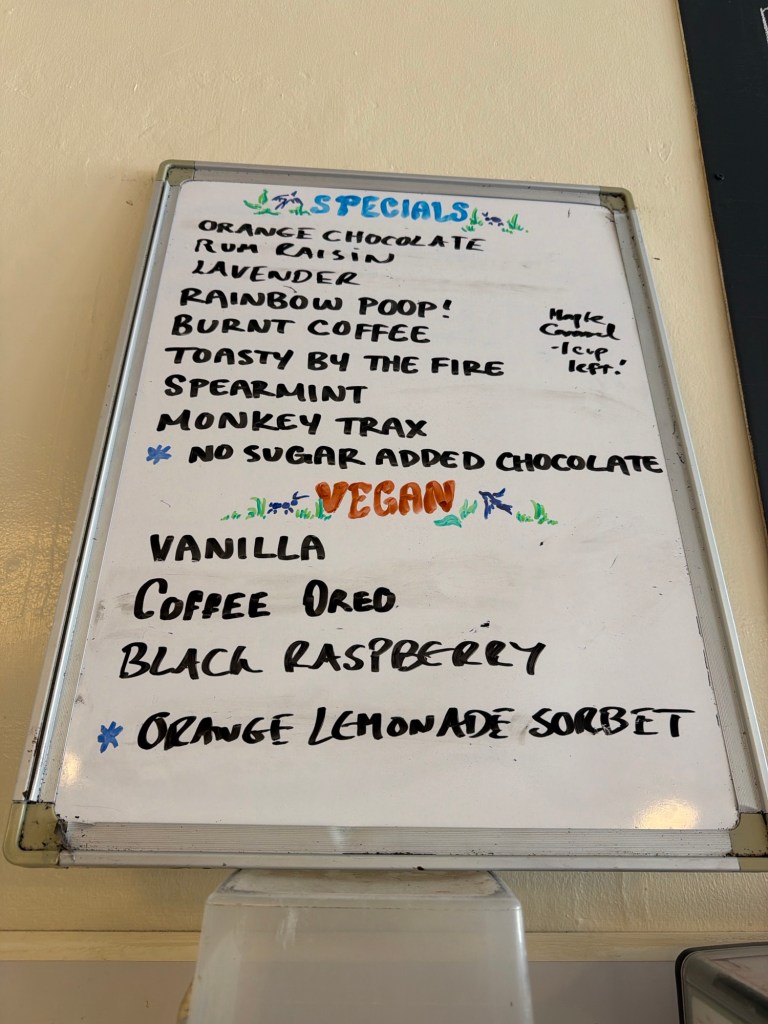 SPECIALS
ORANGE CHOCOLATE
RUM RAISIN
LAVENDER
RAINBOW POOP!
BURNT COFFEE
TOASTY BY THE FIRE
SPEARMINT
MONKEY TRAX
* NO SUGAR ADDED CHOCOLATE
Maple
Caramel
-1 cup
left!
VEGAN
VANILLA
COFFEE OREO
BLACK RASPBERRY
* ORANGE LEMONADE SORBET